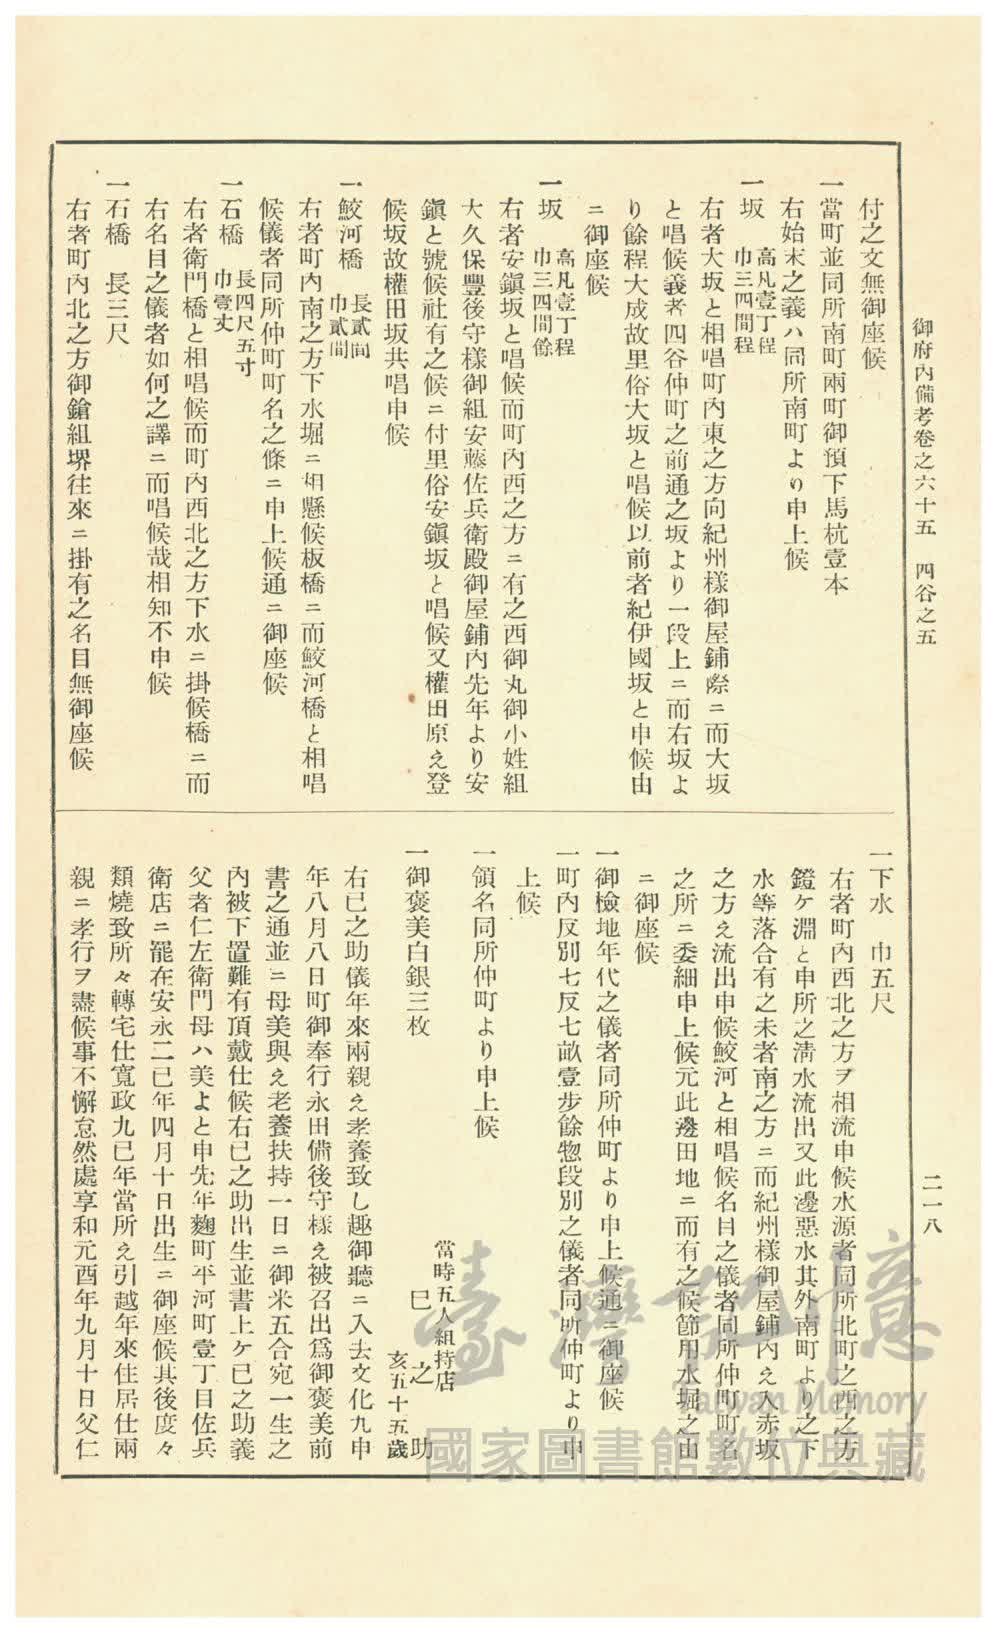 御府內備考卷之六十五　四谷之五
二一八
付之文無御座候
一當町並同所南町兩町御預下馬杭壹本
右始末之義ハ同所南町より申上候
一坂　高凡壹丁程
巾三四間程
右者大坂と相唱町內東之方向紀州樣御屋鋪際ニ而大坂
と唱候義者四谷仲町之前通之坂より一段上ニ而右坂よ
り餘程大成故里俗大坂と唱候以前者紀伊國坂と申候由
ニ御座候
一坂　高凡壹丁程
巾三四間餘
右者安鎭坂と唱候而町內西之方ニ有之西御丸御小姓組
大久保豐後守樣御組安藤佐兵衛殿御屋鋪內先年より安
鎭と號候社有之候ニ付里俗安鎭坂と唱候又權田原え登
候坂故權田坂共唱申候
一鮫河橋　長貳間
巾貳間
右者町內南之方下水堀ニ相懸候板橋ニ而鮫河橋と相唱
候儀者同所仲町町名之條ニ申上候通ニ御座候
一石橋　長四尺五寸
巾壹丈
右者衛門橋と相唱候而町內西北之方下水ニ掛候橋ニ而
右名目之儀者如何之譯ニ而唱候哉相知不申候
一石橋　長三尺
右者町內北之方御鎗組堺往來ニ掛有之名目無御座候
一下水　巾五尺
右者町內西北之方ヲ相流申候水源者同所北町之西之方
鐙ケ淵と申所之淸水流出又此邊惡水其外南町より之下
水等落合有之未者南之方ニ而紀州樣御屋鋪內え入赤坂
之方え流出申候鮫河と相唱候名目之儀者同所仲町町名
之所ニ委細申上候元此邊田地ニ而有之候節用水堀之由
ニ御座候
一御檢地年代之儀者同所仲町より申上候通ニ御座候
一町內反別七反七畝壹步餘惣段別之儀者同所仲町より申
上候
一領名同所仲町より申上候
當時五人組持店
一御褒美白銀三枚　巳之助
亥五十五歲
右巳之助儀年來兩親え孝養致し趣御聽ニ入去文化九申
年八月八日町御奉行永田備後守樣え被召出爲御褒美前
書之通並ニ母美與え老養扶持一日ニ御米五合宛一生之
內被下置難有頂戴仕候右巳之助出生並書上ケ巳之助義
父者仁左衛門母ハ美よと申先年麴町平河町壹丁目佐兵
衛店ニ罷在安永二巳年四月十日出生ニ御座候其後度々
類燒致所々轉宅仕寬政九巳年當所え引越年來住居仕兩
親ニ孝行ヲ盡候事不懈怠然處享和元酉年九月十日父仁
臺灣記憶
Taiwan Memory
國家圖書館數位典藏